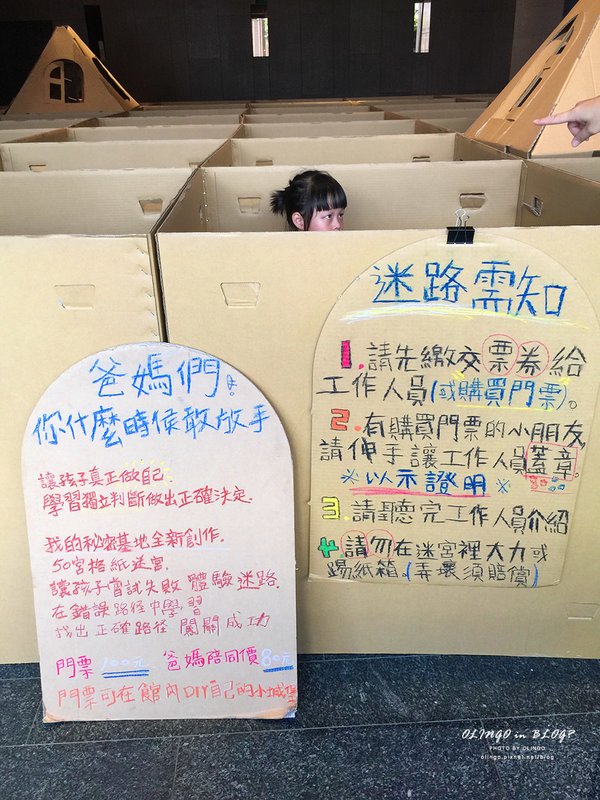 爸媽們!
你什麼時侯敢放手
讓孩子真正做自己
學習獨立判斷做出正確決定.
我的秘密基地全新創作.
50宮格紙迷宮.
讓孩子嘗試失敗 體驗迷路
在錯誤路徑中學習
找出正確路徑 闖關成功
門票 100元 爸媽陪同價80元
門票可在館內DIY自己的小城堡
迷路需知
1.請先繳交票券給
工作人員(或購買門票)。
2.有購買門票的小朋友
請伸手讓工作人員蓋章.
※以示證明※
3.請聽完工作人員介紹
4.請勿在迷宮裡大力或
踢紙箱.(弄壞須賠償)
OLINGO in BLOG?
PHOTO BY OLINGO
olingo.pixnet.net/blog